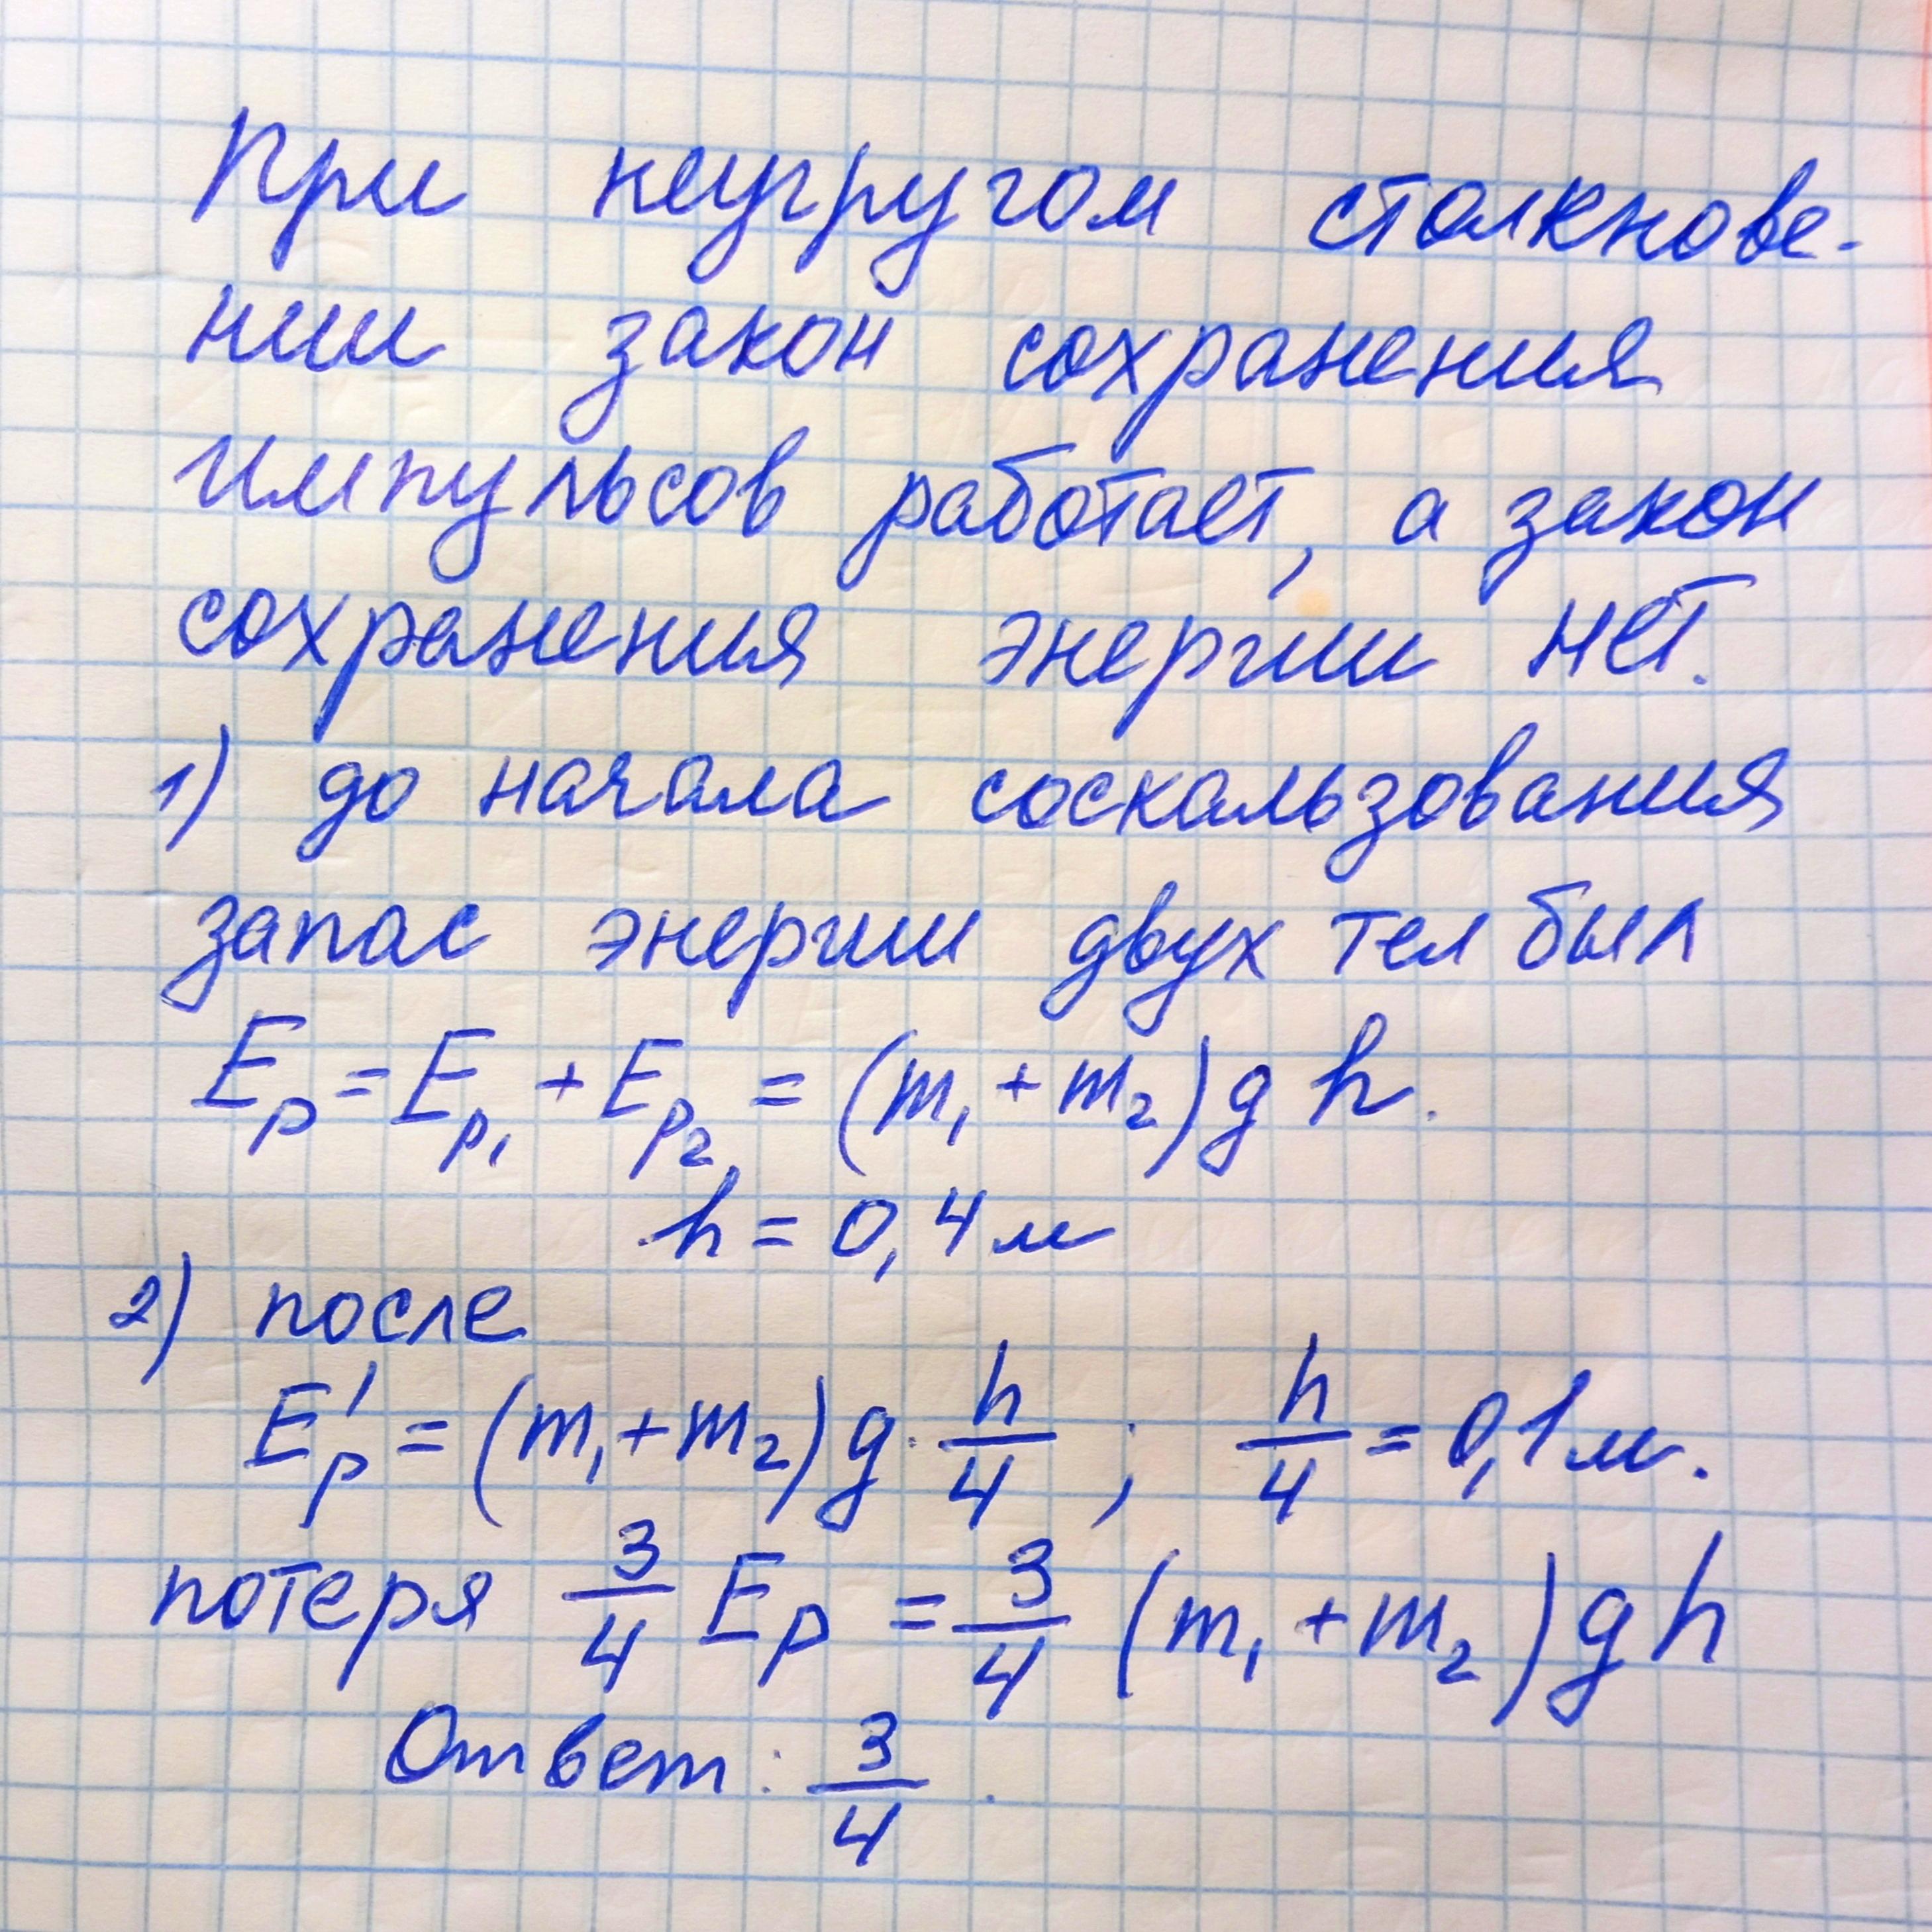 При неупругом столкнове-
нии закон сохранения
импульсов работает, а закон
сохранения энергии нет.
1) до начала соскальзования
запас энергии двух тел был
Eₚ = Eₚ₁ + Eₚ₂ = (m₁ + m₂) g h.
h = 0,4 м
2) после
Eₚ' = (m₁ + m₂) g · h/4 ; h/4 = 0,1 м.
потеря 3/4 Eₚ = 3/4 (m₁ + m₂) g h
Ответ: 3/4.